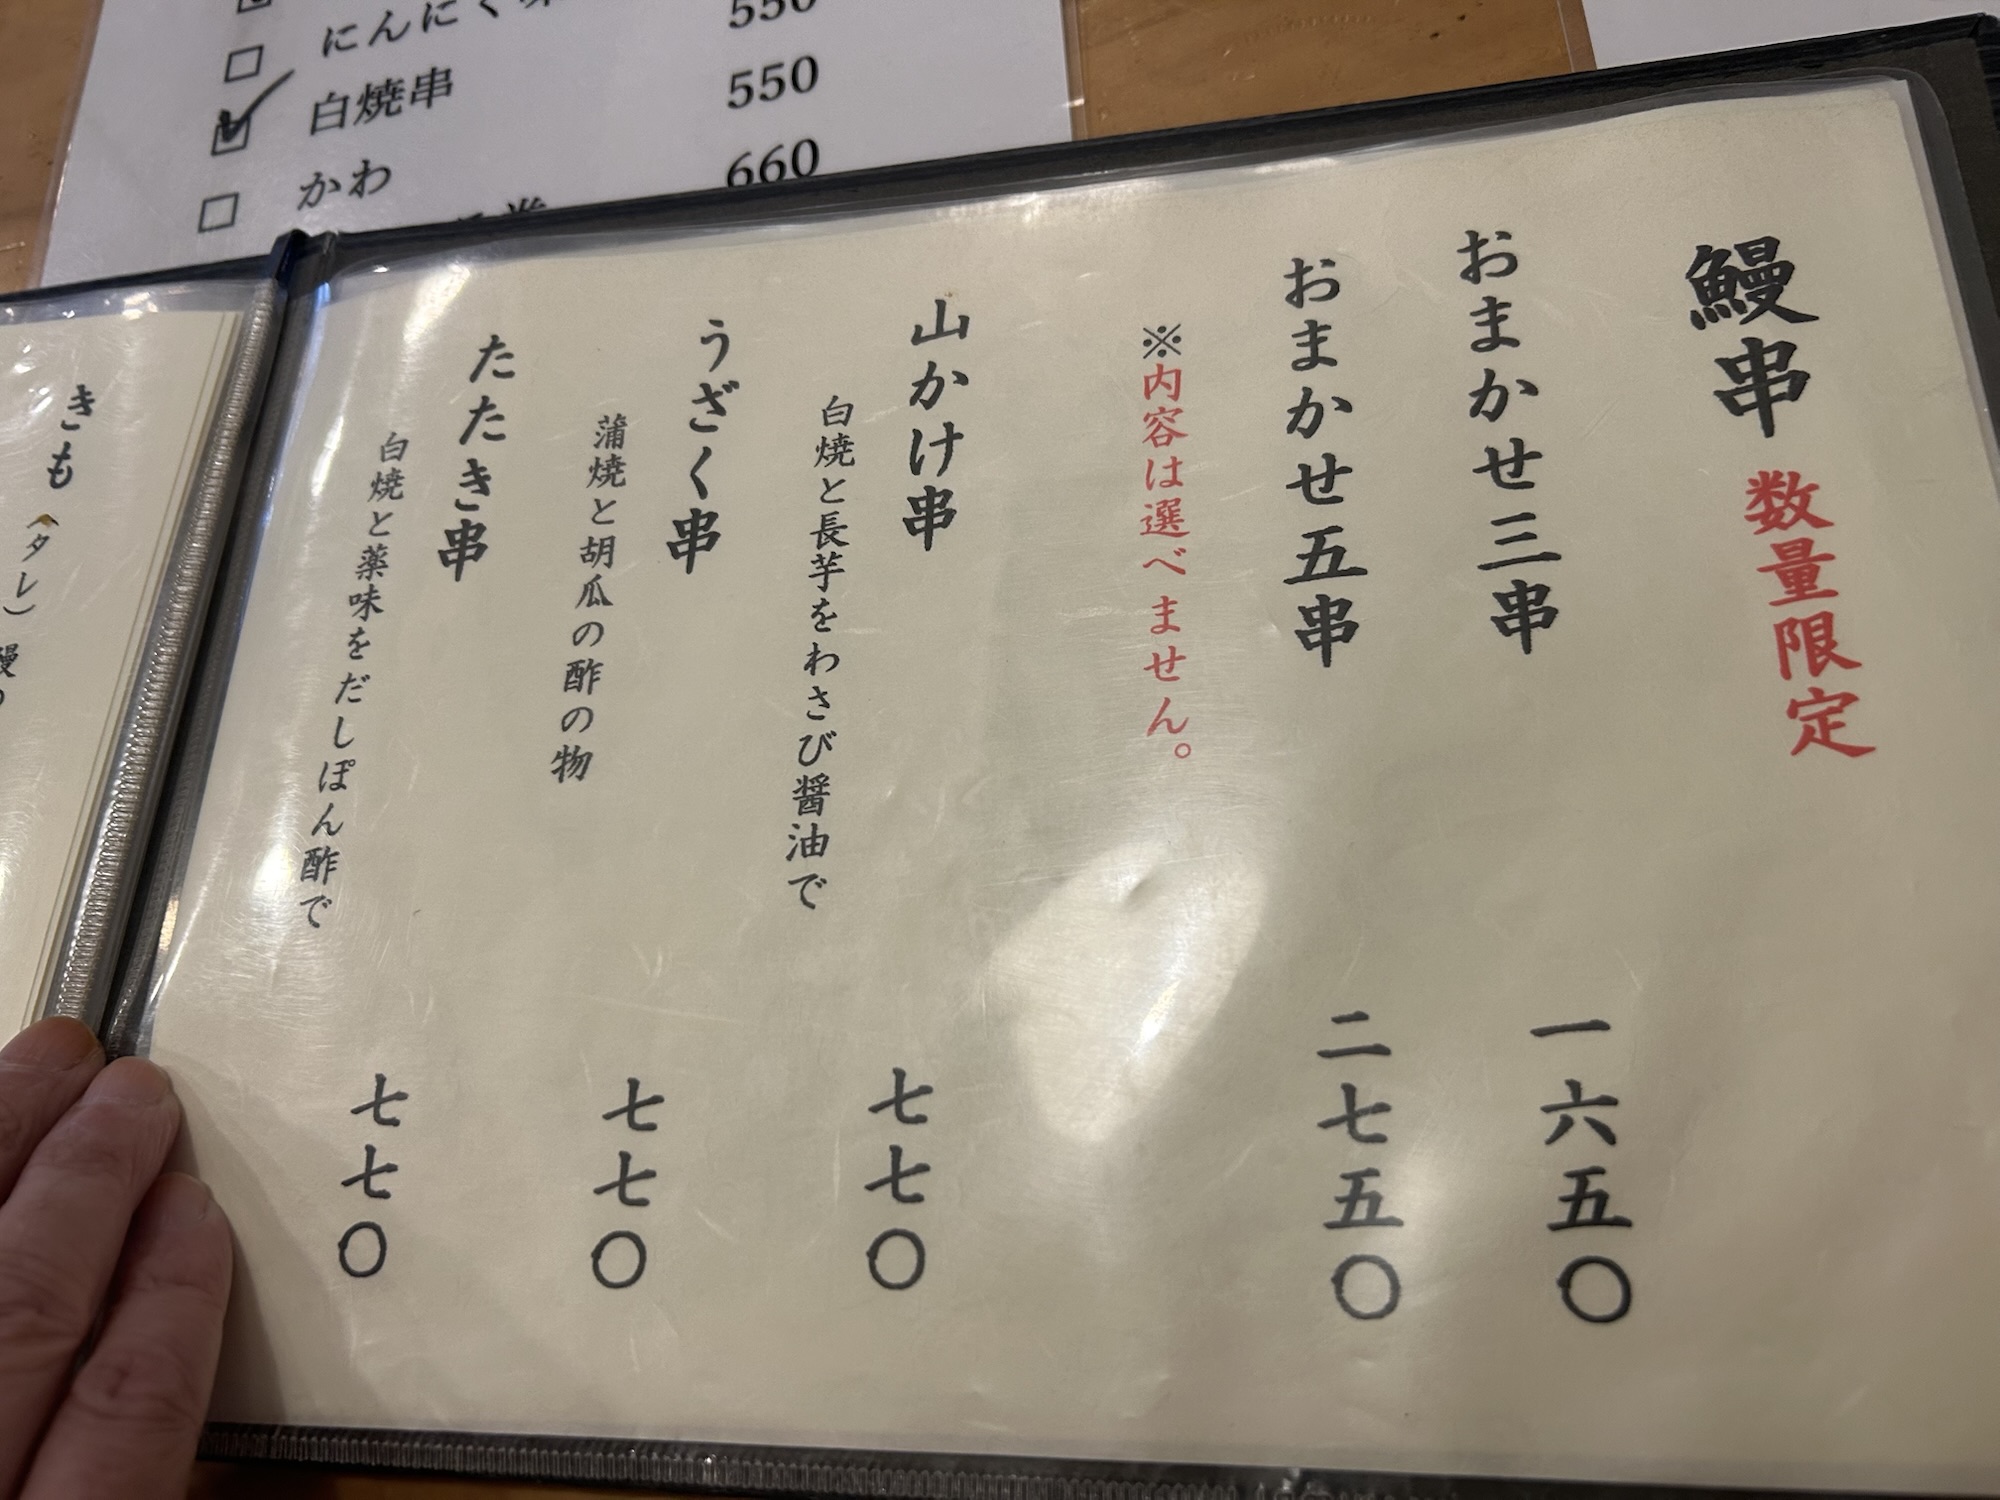 にんにく
550
白焼串
550
かわ
660
鰻串 数量限定
おまかせ三串 一六五〇
おまかせ五串 二七五〇
※内容は選べません。
山かけ串 七七〇
白焼と長芋をわさび醤油で
うざく串 七七〇
蒲焼と胡瓜の酢の物
たたき串 七七〇
白焼と薬味をだしぽん酢で
きも（タレ）
鰻の